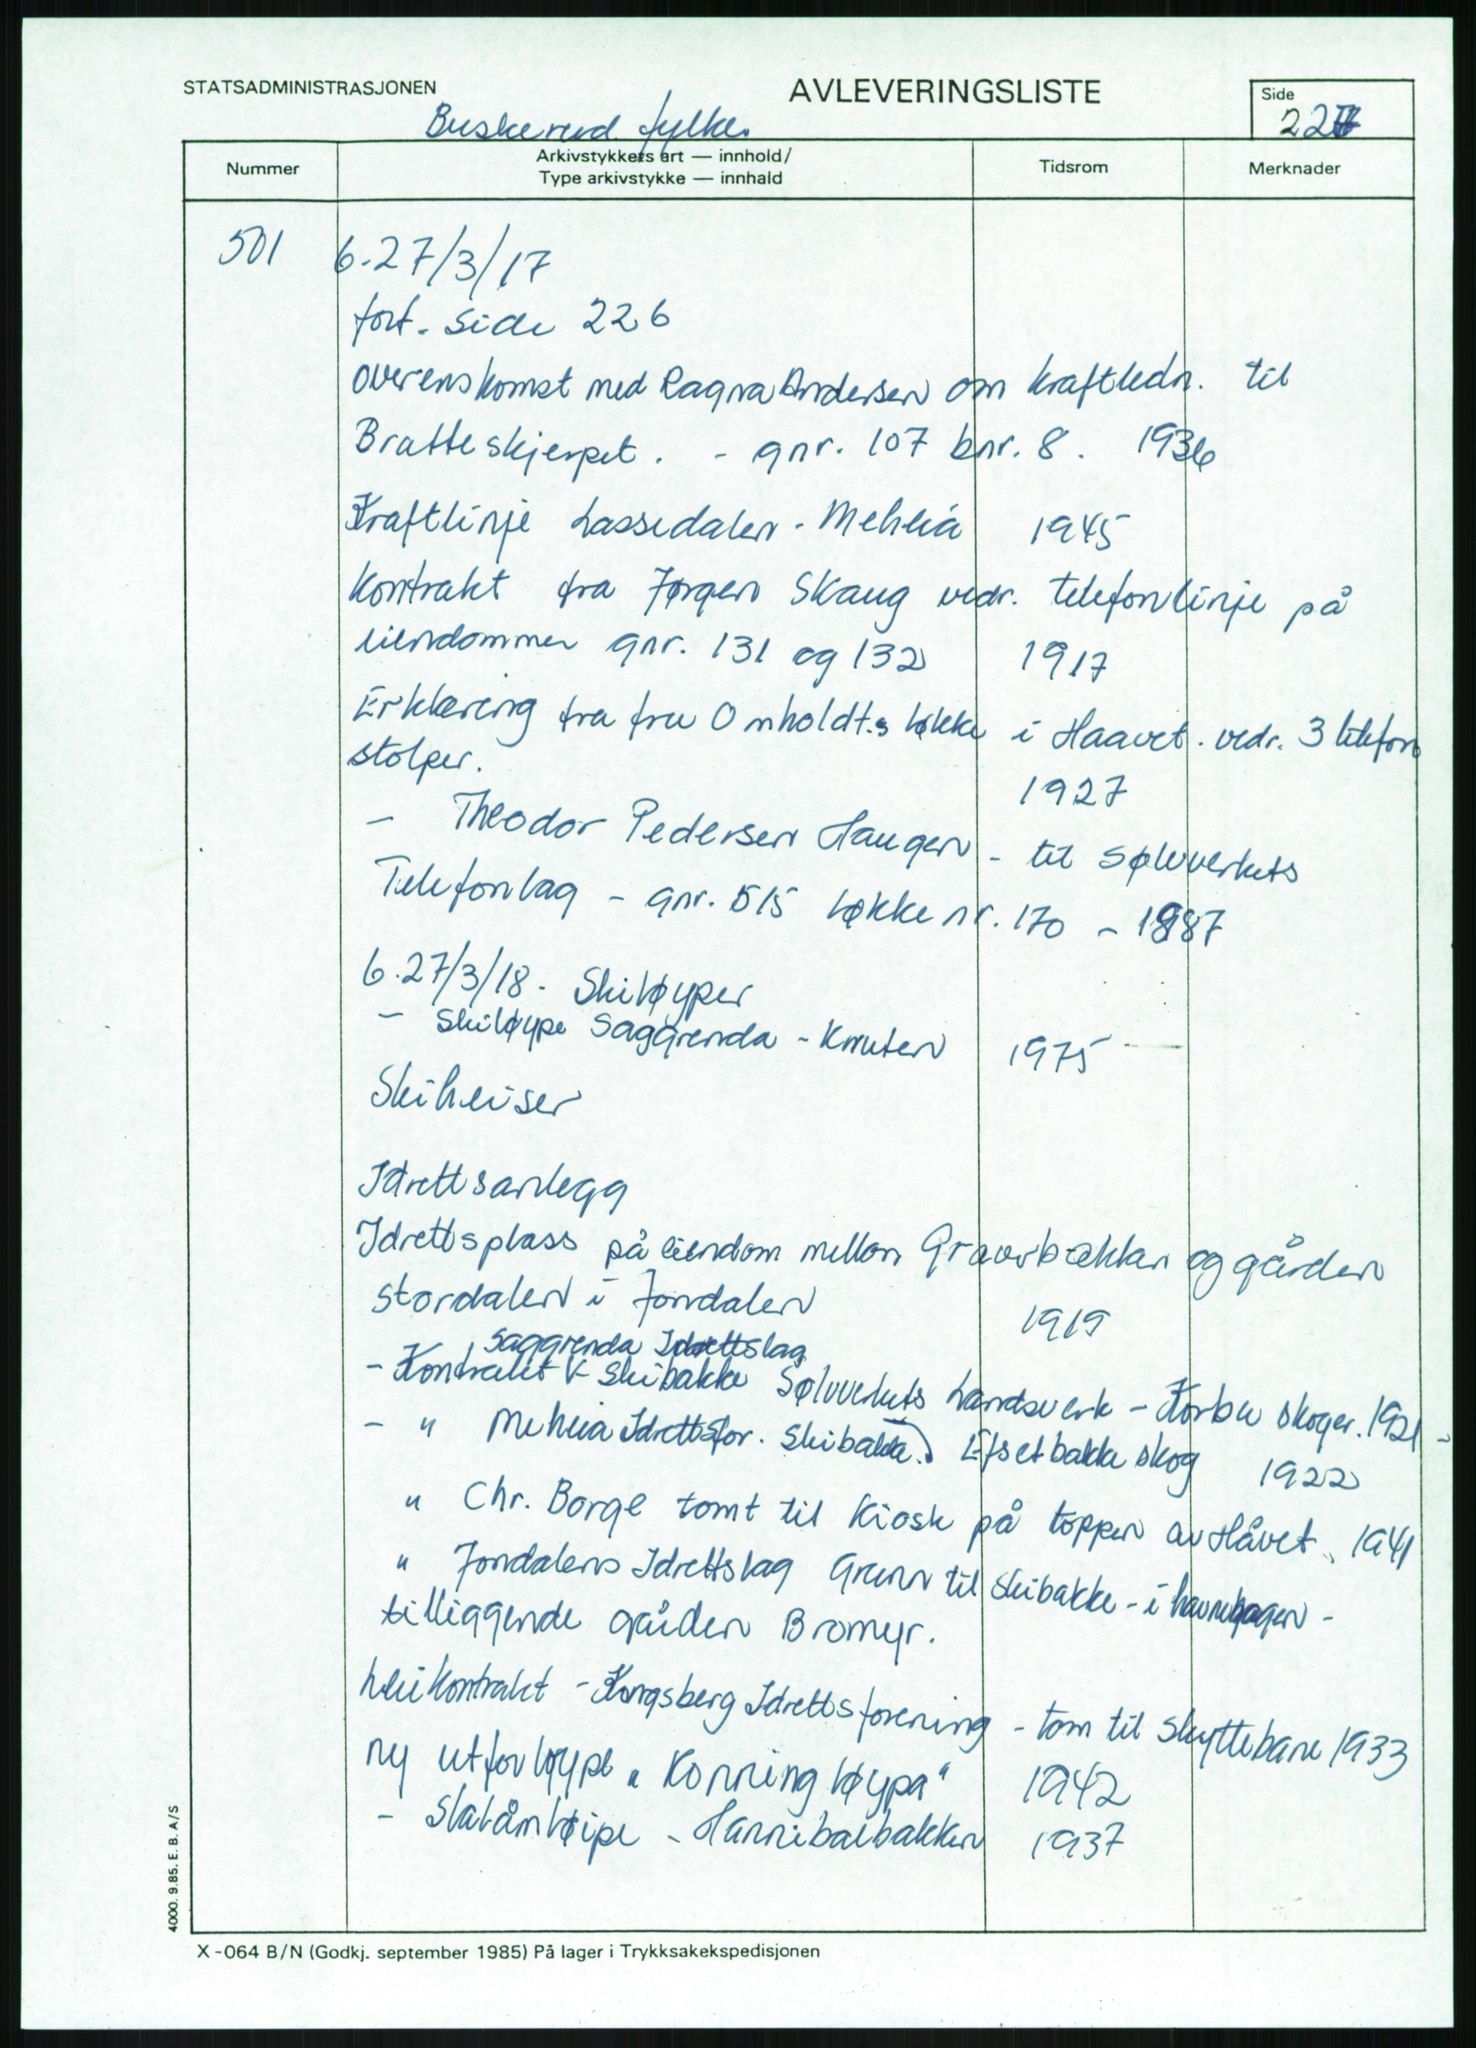 STATSADMINISTRASJONEN
AVLEVERINGSLISTE
Side
227
Buskerud fylke.
Nummer
Arkivstykkets art — innhold/
Type arkivstykke — innhald
Tidsrom
Merknader
501 6.27/3/17
fort. side 226
overenskomst med Ragna Andersen om kraftledn. til
Bratteskjerpet. - gnr. 107 bnr. 8. 1936
Kraftlinje Lassedalen - Meheia 1945
Kontrakt fra Jørgen Skaug vedr. telefonlinje på
eiendommer gnr. 131 og 132 1917
Erklæring fra fru Omholdt.s løkke i Haavet. vedr. 3 telefon
stolper.
1927
- Theodor Pedersen Haugen - til sølvverkets
Telefonlag - gnr. 515 løkke nr. 170 - 1987
6.27/3/18 - Skiløyper
- Skiløype Saggrenda - Knuten 1975
Skiheiser
Idrettsanlegg
Idrettsplass på eiendom mellom Gravbekken og gården
Stordalen i Jondalen
1919
Saggrenda Idrettslag
- Kontrakt skibakke Sølvverkets Landsverk - Korbu skoger. 1921 -
- " Meheia Idrettsfor. Skibakke Efsetbakke skog 1922
" Chr. Borge tomt til Kiosk på toppen av Håvet, 1941
" Jondalens Idrettslag Grunn til skibakke - i havnehagen -
tilliggende gården Bromyr.
Leiekontrakt - Kongsberg Idrettsforening - tom til skyttebane 1933
ny utforløype " Korningløypa" 1942
- Slalåmløipe - Hannibalbakken 1937
4000. 9.85. E. B. A/S
X-064 B/N (Godkj. september 1985) På lager i Trykksakekspedisjonen